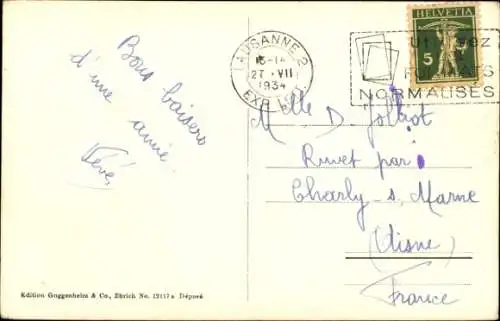 Bons baisers
d'une amie
LAUSANNE 2
27 . VII
1934
EXP. LET.
HELVETIA
5
FORMATS
NORMALISES
Melle D Jolliot
Ruvet par
Charly s. Marne
(Aisne)
France
Edition Guggenheim & Co., Zürich No. 12117 a Déposé